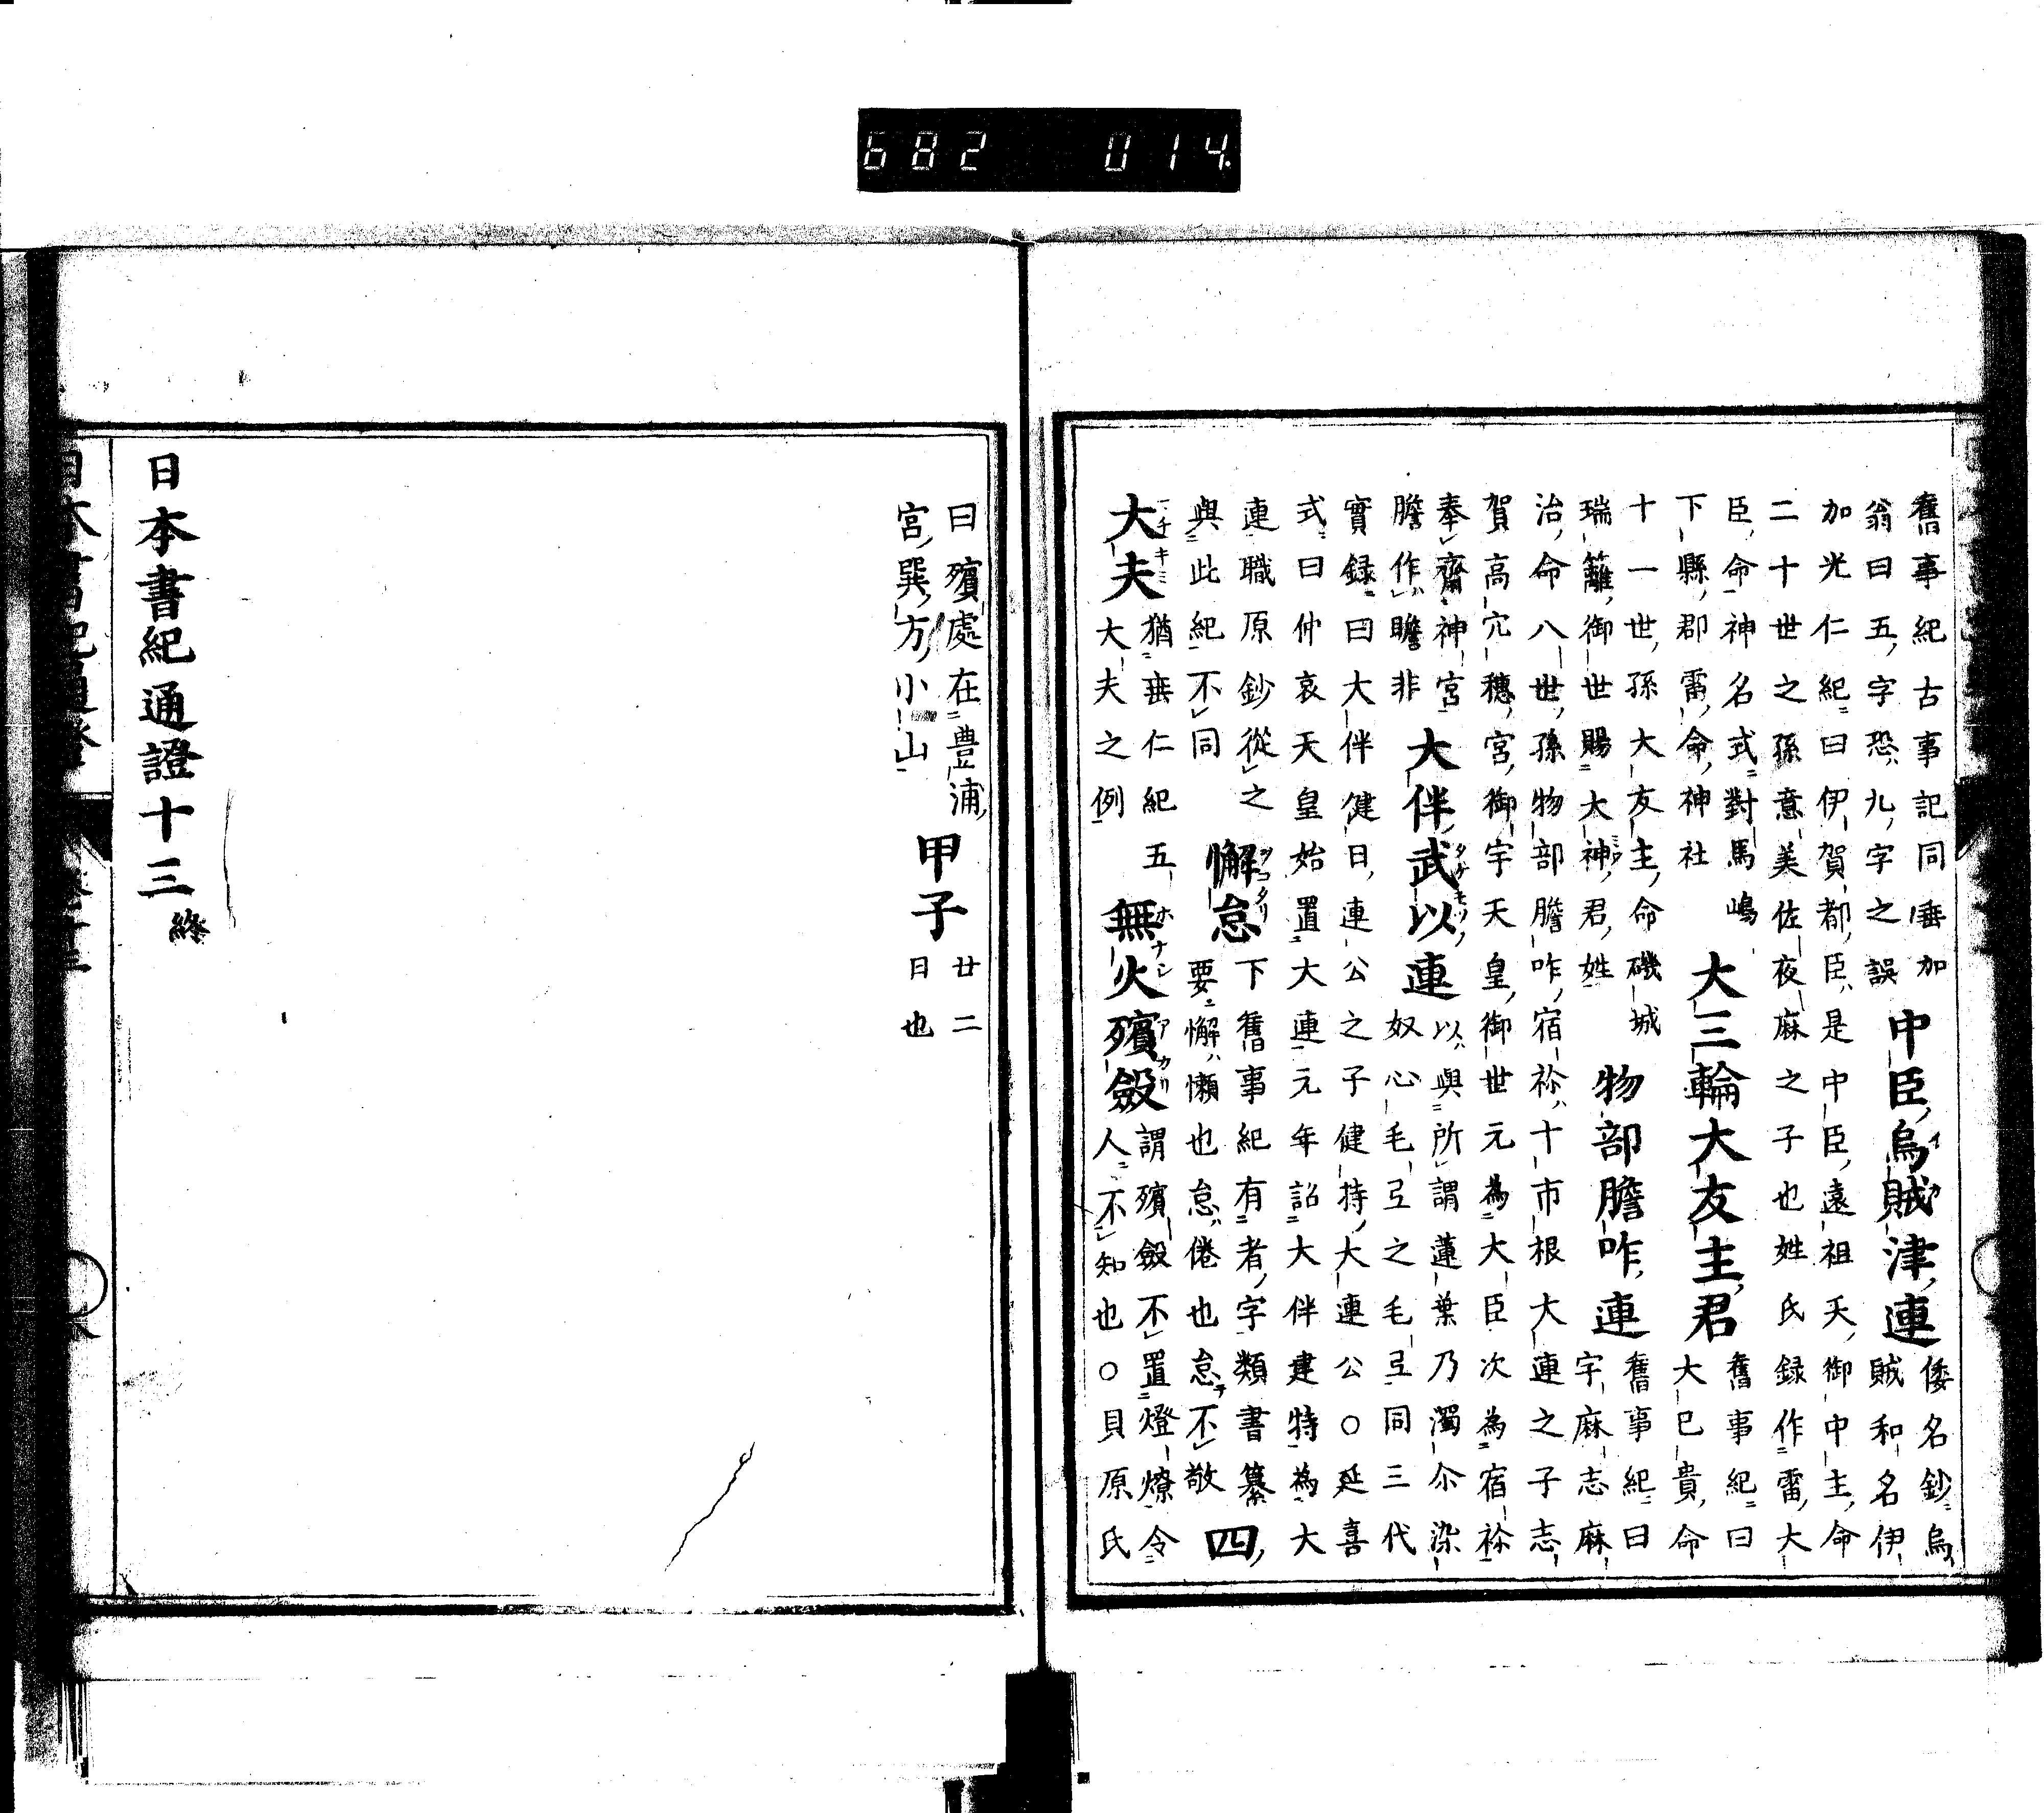 682 014.
舊事紀古事記同垂加
翁曰五字恐九字之誤
中臣烏賊津連
倭名鈔烏
賊和名伊
加光仁紀曰伊賀都臣是中臣遠祖天御中主命
二十世之孫意美佐夜麻之子也姓氏録作雷大
臣命神名式對馬嶋
下縣郡雷命神社
大三輪大友主君
舊事紀曰
大已貴命
十一世孫大友主命磯城
瑞籬御世賜大神君姓
物部膽咋連
舊事紀曰
宇麻志麻
治命八世孫物部膽咋宿祢十市根大連之子志
賀高穴穗宮御宇天皇御世元為大臣次為宿祢
奉齋神宮
膽作瞻非
大伴武以連
以與所謂蓮葉乃濁尒染
奴心毛弖之毛弖同三代
實録曰大伴健日連公之子健持大連公○延喜
式曰仲哀天皇始置大連元年詔大伴建特為大
連職原鈔從之
與此紀不同
懈怠
下舊事紀有者字類書纂
要懈懶也怠倦也怠不敬
四
大夫
猶垂仁紀五
大夫之例
無火殯斂
謂殯斂不置燈燎令
人不知也○貝原氏
曰殯處在豊浦
宮巽方小山
甲子
廿二
日也
日本書紀通證十三終